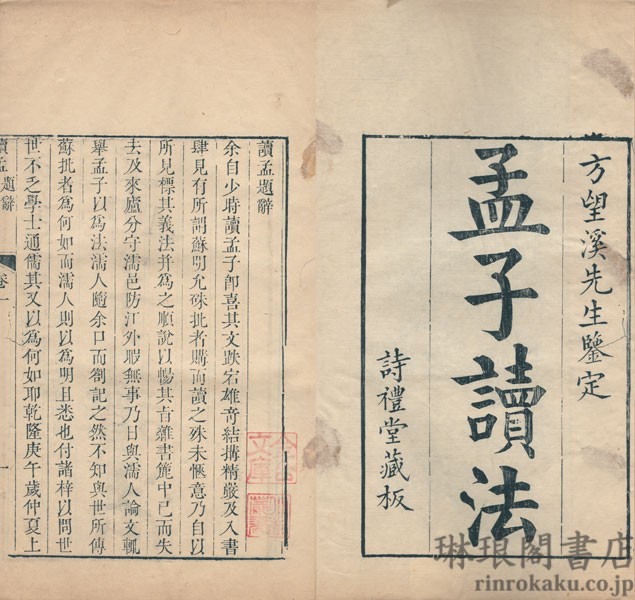 方望溪先生鑒定
孟子讀法
詩禮堂藏板
讀孟題辭
余自少時讀孟子卽喜其文跌宕雄奇結搆精嚴及入書
肆見有所謂蘇明允硃批者購而讀之殊未愜意乃自以
所見標其義法并為之順說以暢其旨雜書簏中已而失
去及來廬分守濡邑防江外暇無事乃日與濡人論文輒
舉孟子以為法濡人隨余口而劄記之然不知與世所傳
蘇批者為何如而濡人則以為明且悉也付諸梓以問世
世不乏學士通儒其又以為何如耶乾隆庚午歲仲夏上
讀孟題辭
卷一
一
琳琅閣書店
rinrokaku.co.jp